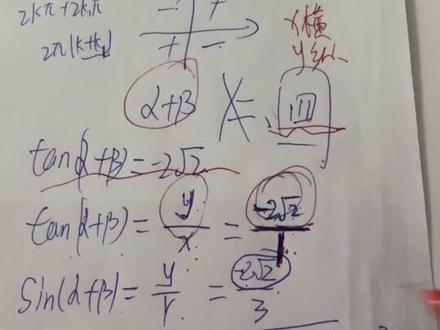 2kπ+2k₁π
2π(k+k₁)
- +
+ -
x横
y纵
α+β
x=
tan(α+β)=-2√2
tan(α+β)=y/x=-2√2/1
sin(α+β)=y/r=-2√2/3